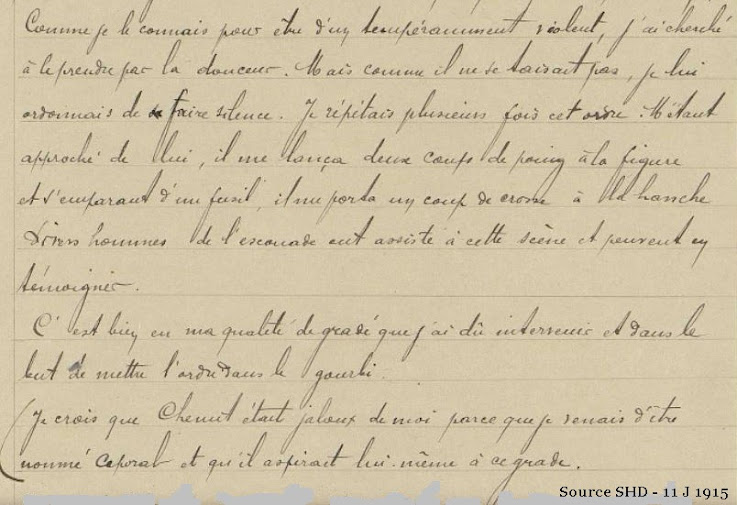 Comme je le connais pour être d'un tempéramment violent, j'ai cherché
à le prendre par la douceur. Mais comme il ne se taisait pas, je lui
ordonnais de faire silence. Je répétais plusieurs fois cet ordre. M'étant
approché de lui, il me lança deux coups de poing à la figure
et s'emparant d'un fusil, il me porta un coup de crosse à la hanche
Divers hommes de l'escouade ont assisté à cette scène et peuvent en
témoigner.
C'est bien en ma qualité de gradé que j'ai dû intervenir et dans le
but de mettre l'ordre dans le gourbi.
(Je crois que Chemit était jaloux de moi parce que je venais d'être
nommé Caporal et qu'il aspirait lui-même à ce grade.
Source SHD - 11 J 1915